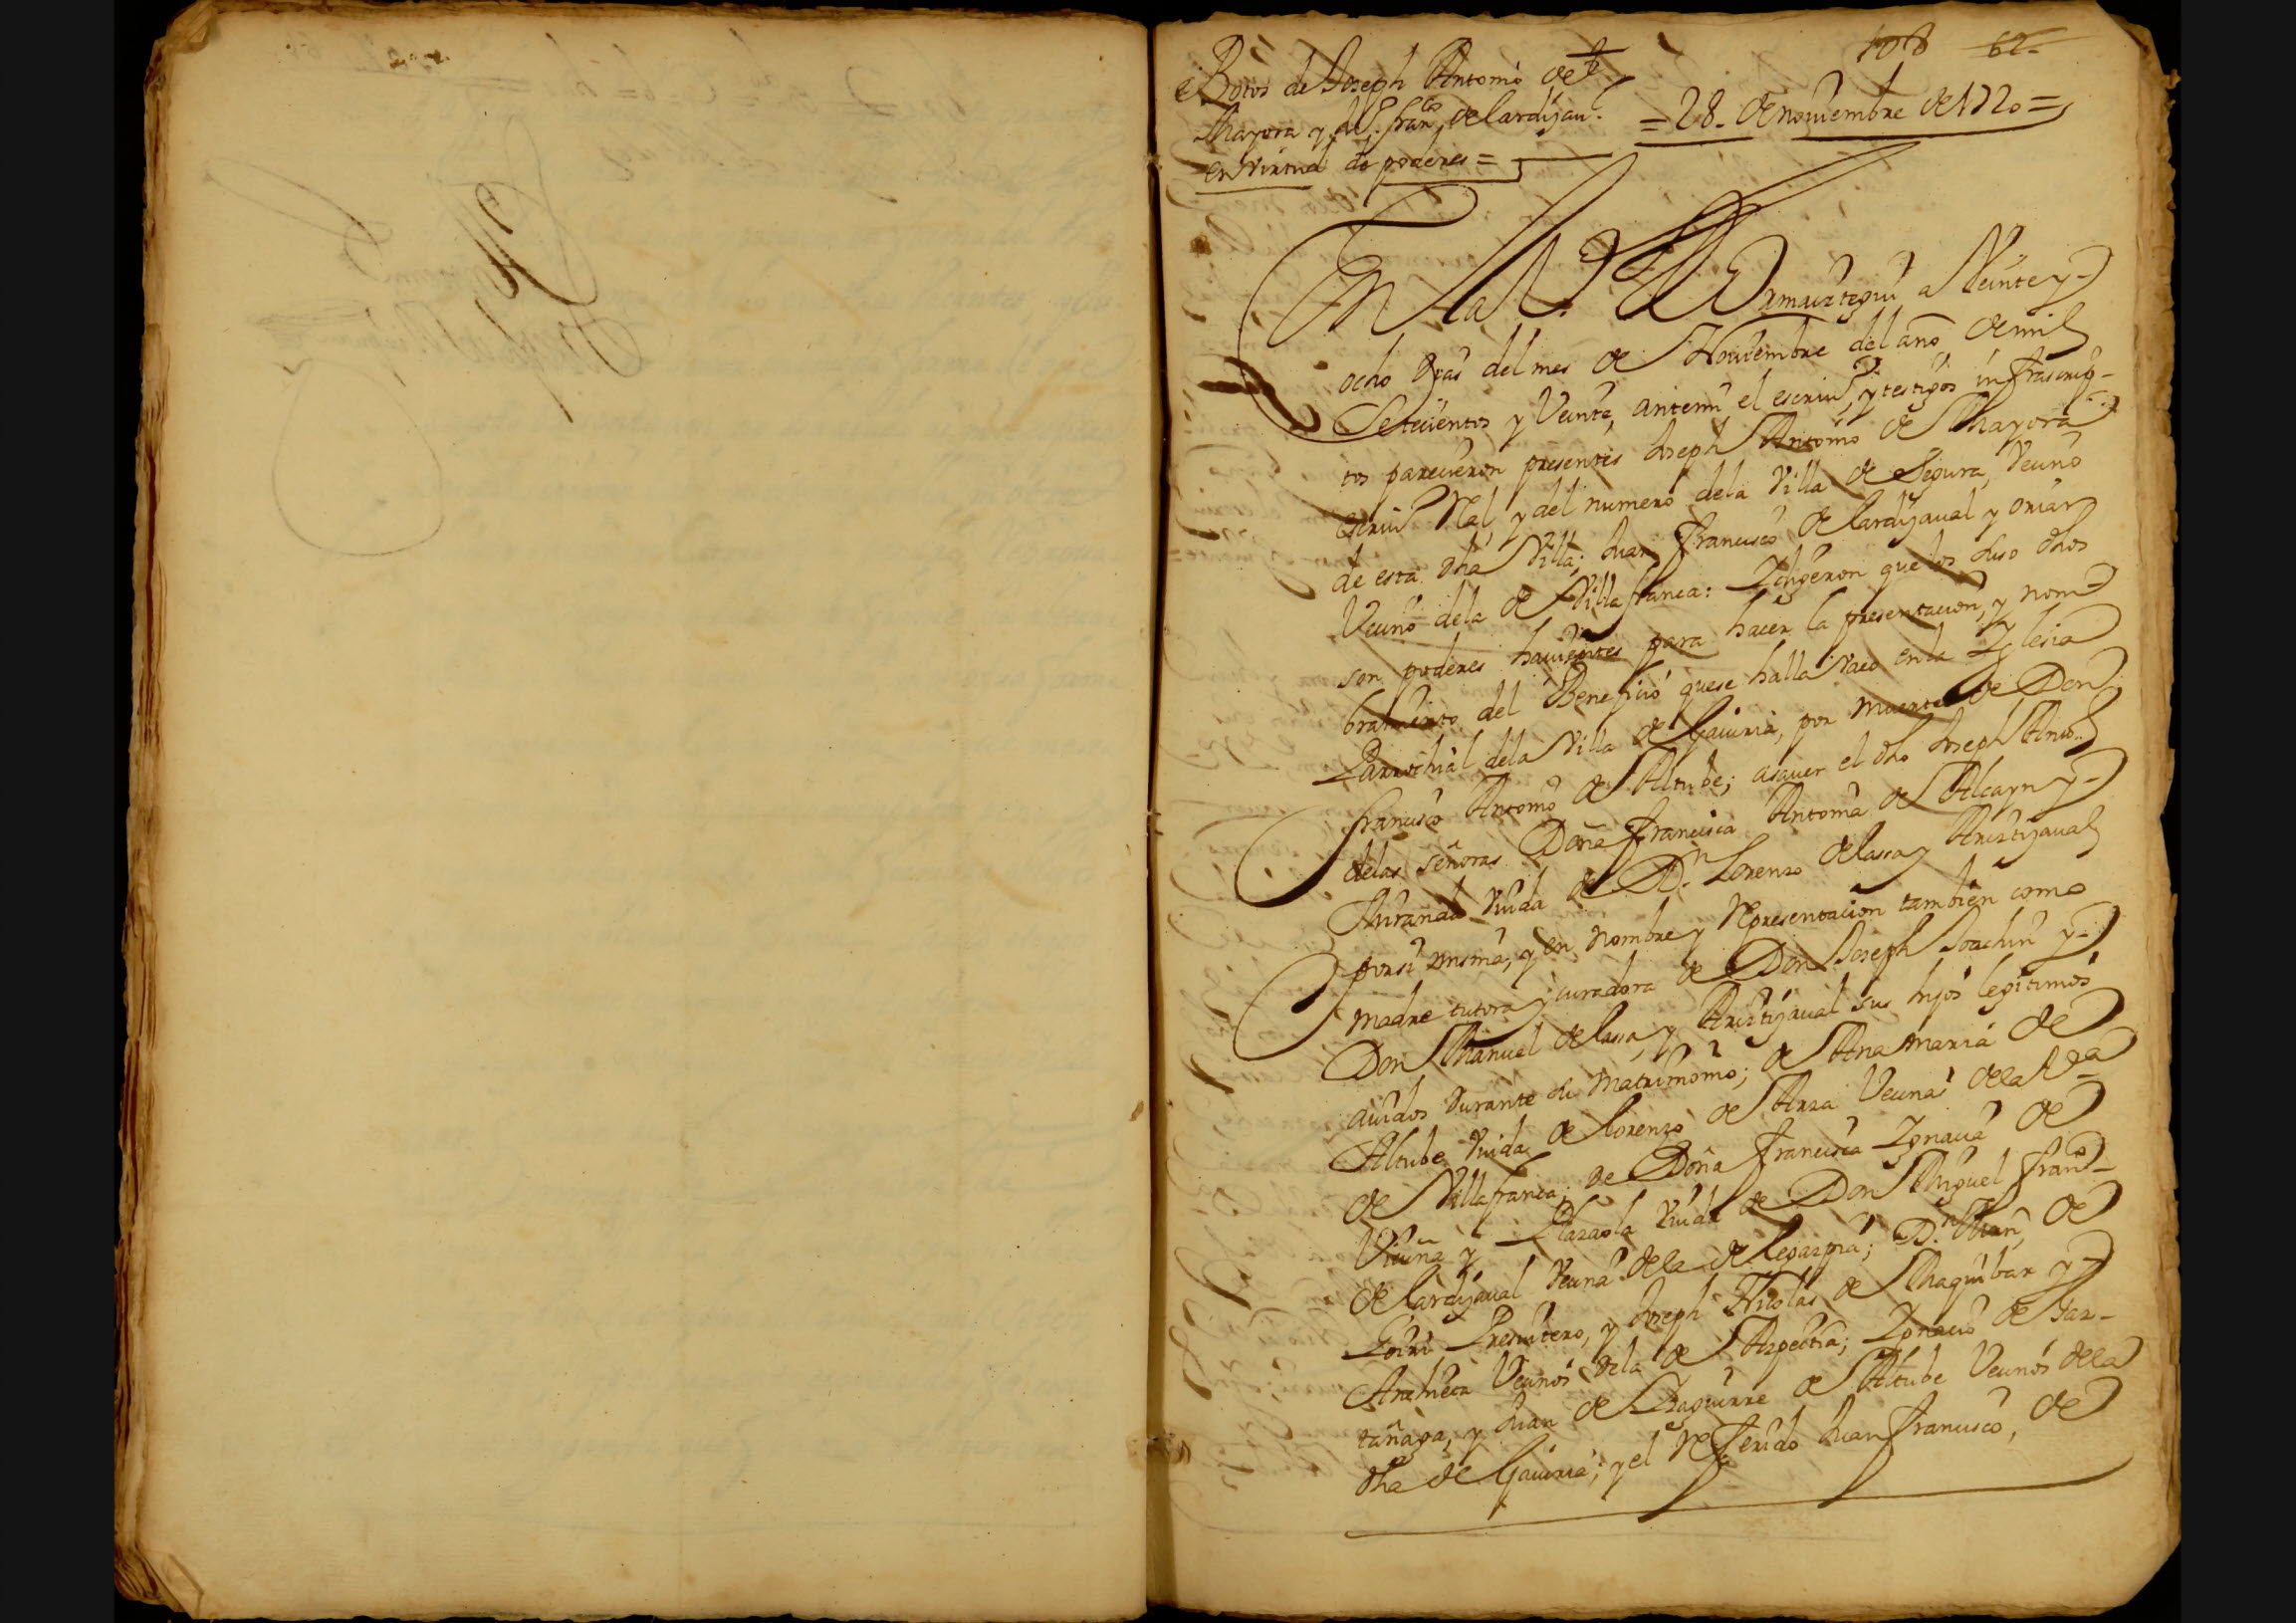 108 62
Botos de Joseph Antonio de
Mayora y de J. Franco de Lardizaul
en virtud de poderes =
= 28 de nouiembre de 1720 =
En la Va de Ormaiztegui a Veinte y
ocho dias del mes de Nouiembre del año de mil
Setecientos y Veinte, antemi el escriuo y testigos infrascrip-
tos parecieron presentes Joseph Antonio de Mayora
escriuo Rl y del numero dela Villa de Segura, Vecino
de esta dha Villa; Juan Francisco de Lardizaual y oriar
Vecino dela de Villafranca: Y dijeron que los duo dhos
son poderes hauientes para hacer la presentacion, y nom-
bramiento del Beneficio quese halla vaco enla Iglesia
Parrochial dela Villa de Gauiria, por muerte de Don
Francisco Antonio de Altube; asauer el dho Joseph Anto.
delas señoras Doña Francisca Antonia de Alcayn y
viuda de Dn Lorenzo delasa y Ariztizaual
porsi misma, y en nombre y Representacion tambien como
madre tutora y curadora de Don Joseph Joachin y
Don Manuel delasa, y Ariztizaual sus hijos legitimos
auidos durante su Matrimonio; de Ana maria de
Altube viuda de Lorenzo de Arza Vecinas dela Va
de Villafranca; de Doña Francisca Ignacia de
Vicuña y Plazaola viuda de Don Miguel Franco
de Lardizaual Vecina dela de Legazpia; Dn Juan de
Presuitero, y Joseph Nicolas de Maguibar y
Vecinos dela de Azpeitia; Ignacio de Gar-
tañaga, y Juan de Yzaguirre de Altube Vecinos dela
dha de Gauiria; y el Referido Juan Francisco, de